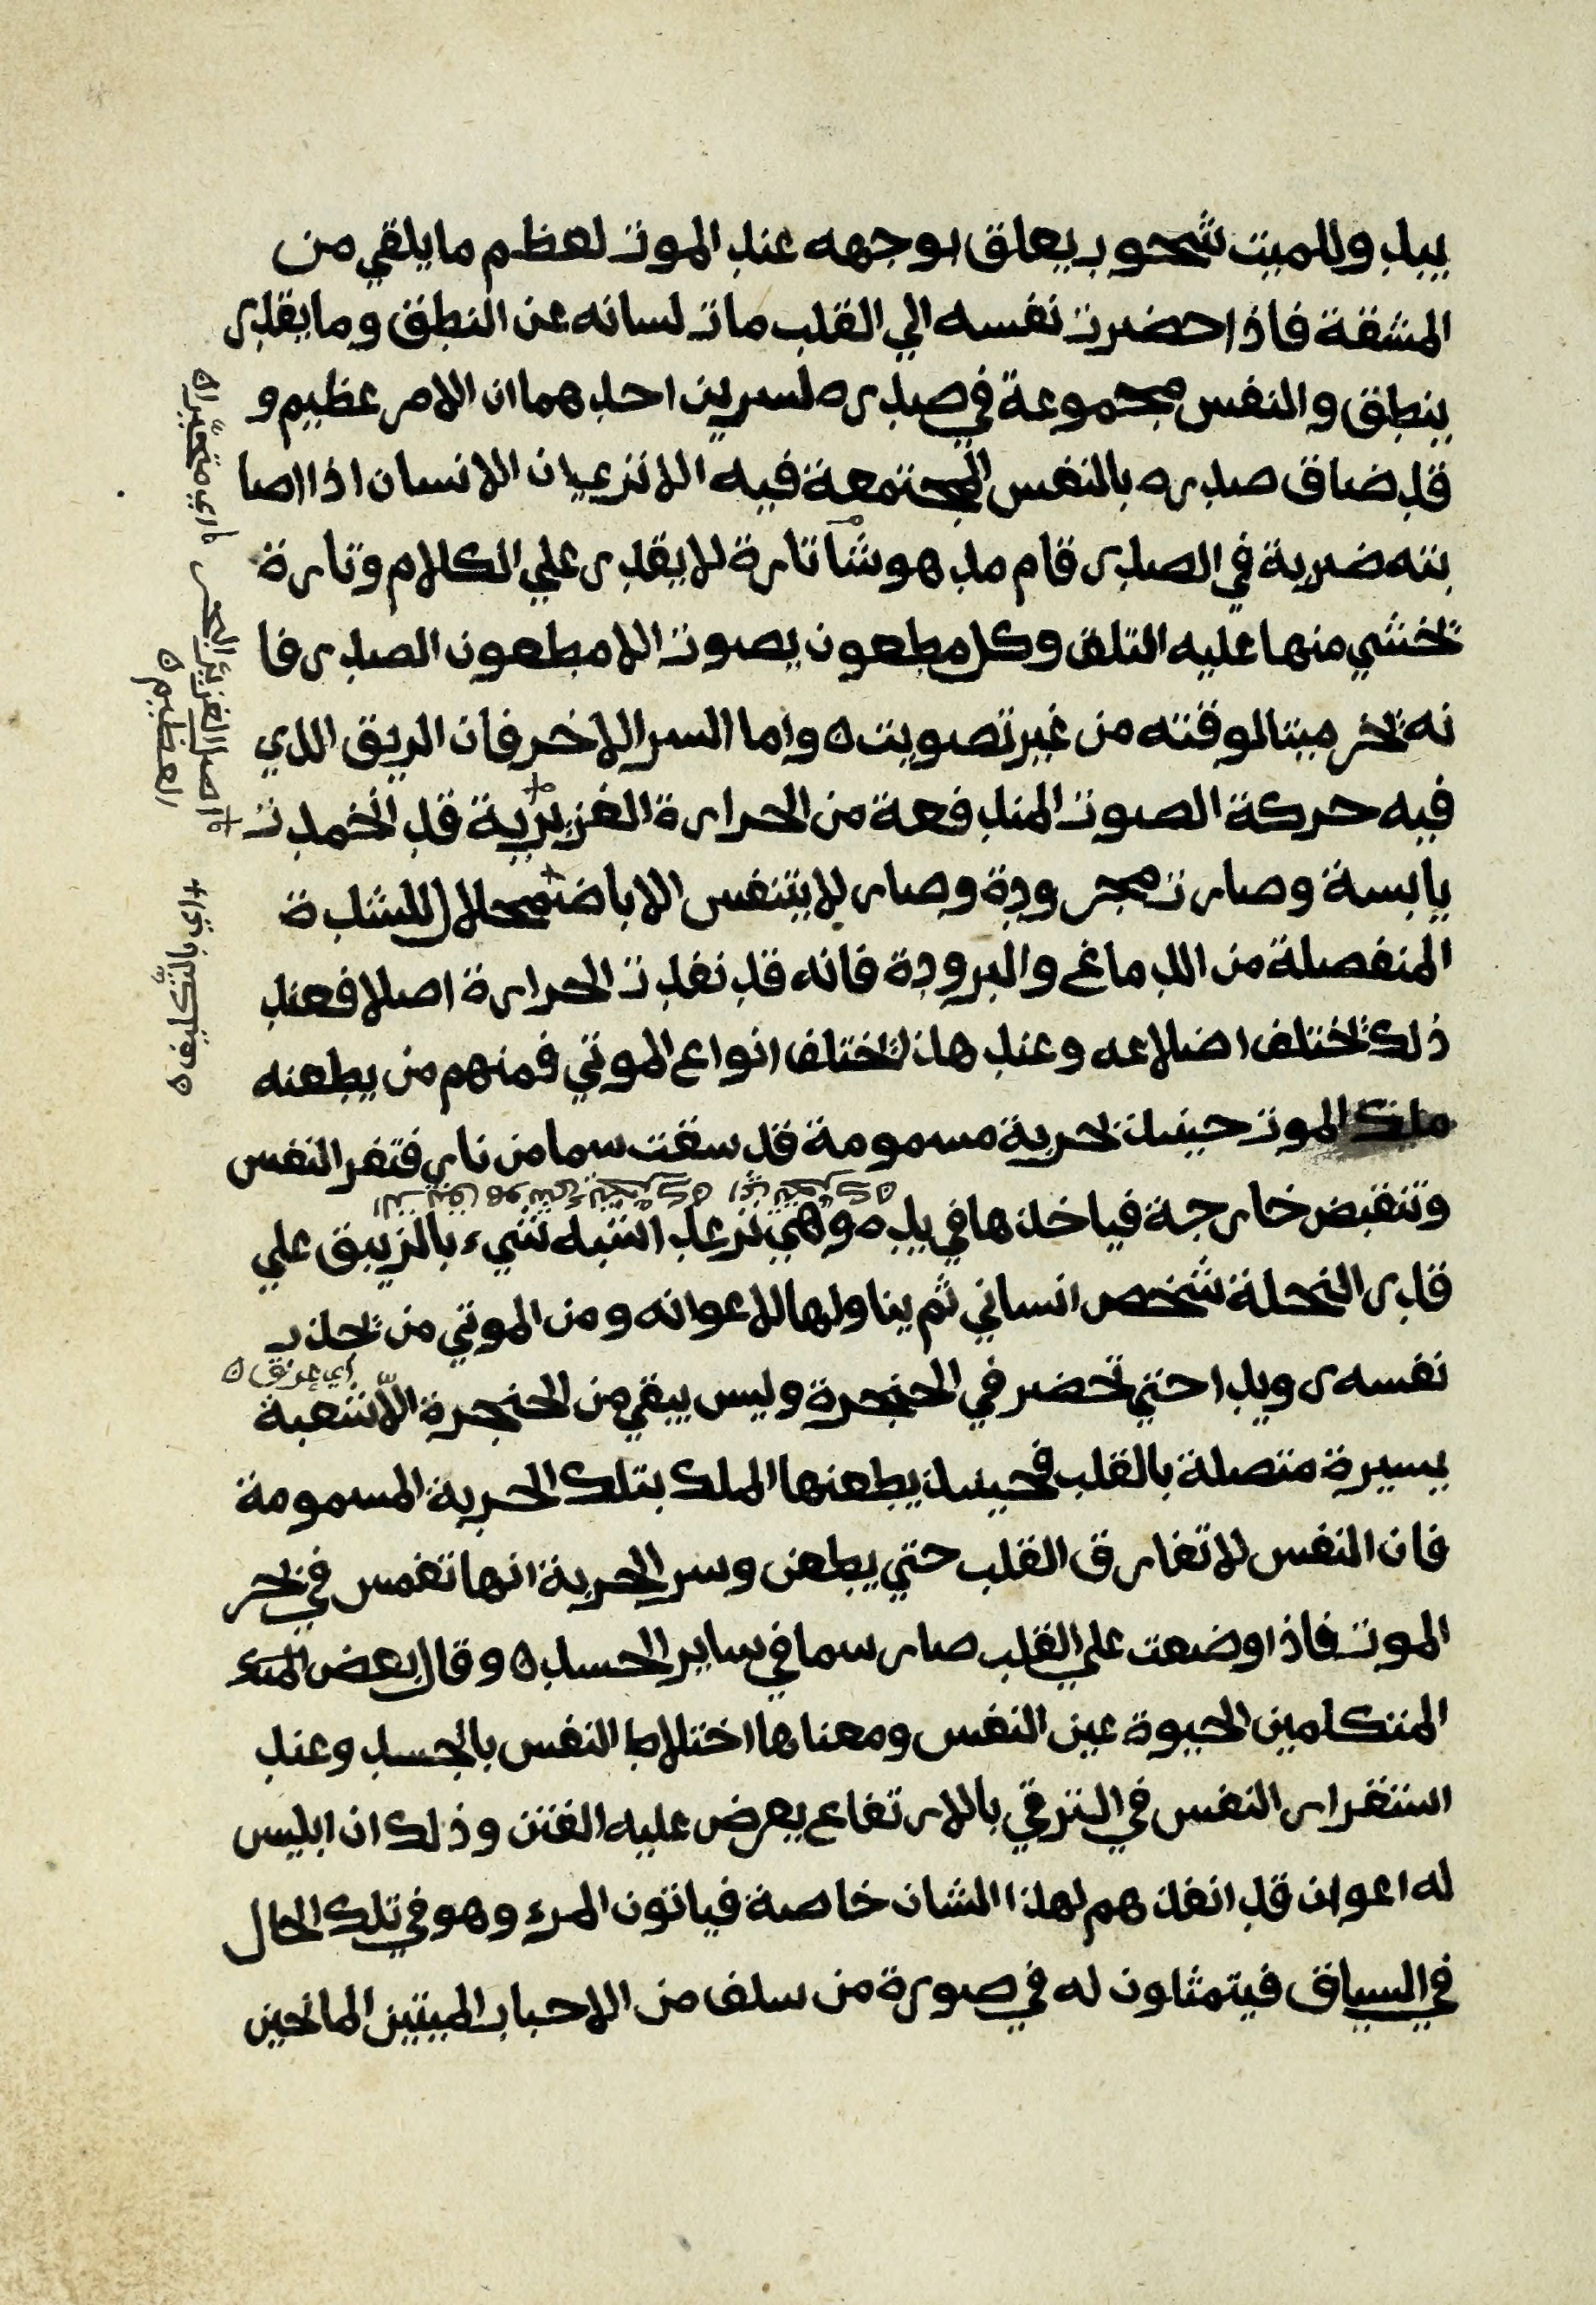 بيد وللميت شحوب يعلق بوجهه عند الموت لعظم ما يلقي من
المشقة فاذا حضرت نفسه الي القلب مات لسانه عن النطق وما يقدر
ينطق والنفس مجموعة في صدره لسرين احدهما ان الامر عظيم و
قد ضاق صدره بالنفس المجتمعة فيه الا تري ان الانسان اذا اصا
بته ضربة في الصدر قام مدهوشا تارة لا يقدر علي الكلام وتارة
تخشي منها عليه التلف وكل مطعون يصوت الا مطعون الصدر فا
نه تخر ميتا لوقته من غير تصويت ه واما السر الاخر فان الريق الذي
فيه حركة الصوت المندفعة من الحرارة الغزيزية قد انخمدت
يابسة وصارت مجرودة وصار لا يتنفس الا باضمحلال للشدة
المنفصلة من الدماغ والبرودة فانه قد نفدت الحرارة اصلا فعند
ذلك تختلف اضلاعه وعند هاذا تختلف انواع الموتي فمنهم من يطعنه
ملك الموت حينىذ بحربة مسمومة قد سقت سما من نار فتفر النفس
وتنقبض خارجة فياخذها في يده وهي ترعد اشبه شيء بالزيبق علي
قدر النحلة شخص انساني ثم يناولها لاعوانه ومن الموتي من تحذب
اي عرق ه
نفسه رويدا حتي تحضر في الحنجرة وليس يبقي من الحنجرة الّا شعبة
يسيرة متصلة بالقلب فحينىذ يطعنها الملك بتلك الحربة المسمومة
فان النفس لا تفارق القلب حتي يطعن وسر الحربة انها تغمس في بحر
الموت فاذا وضعت علي القلب صار سما في ساير الجسد ه وقال بعض
المتكلمين الحيوة عين النفس ومعناها اختلاط النفس بالجسد وعند
استقرار النفس في الترقي بالارتفاع يعرض عليه الفتن وذلك ان ابليس
له اعوان قد انفذهم لهذا الشان خاصة فياتون المرء وهو في تلك الحال
في السياق فيتمثلون له في صورة من سلف من الاحباب الميتين المانحين
اي متحيّرا ه
اصل الغزيز البحر
العظيم ه
اي بالتكليف ه